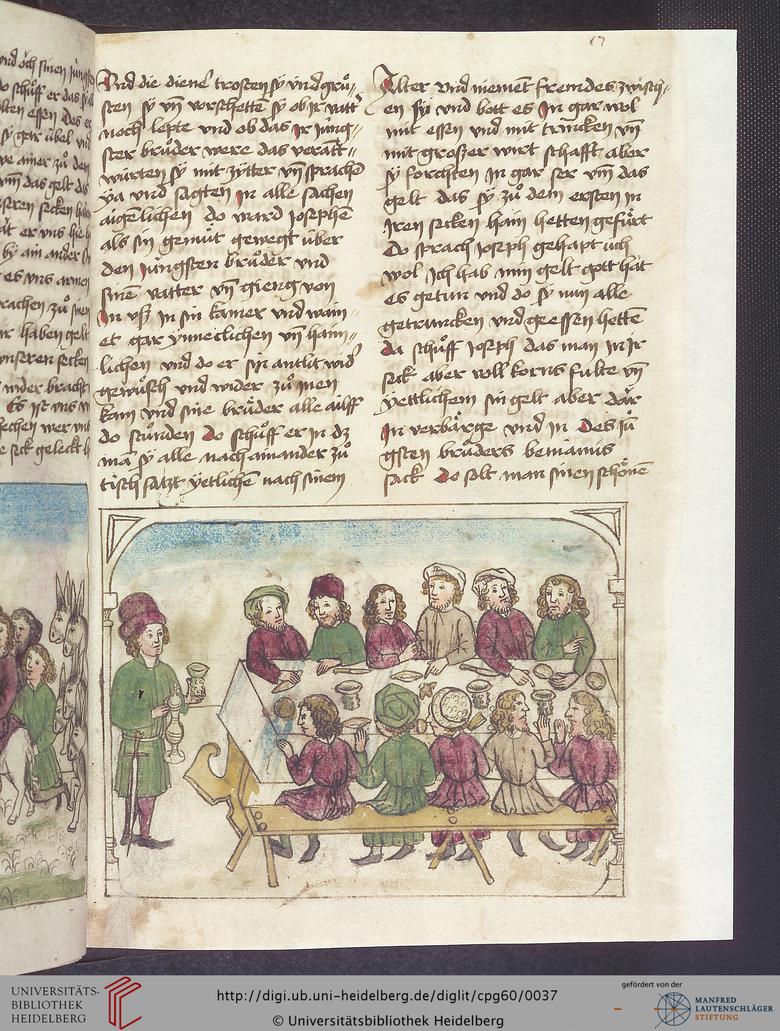 17
Und die diener trosten sÿ vnd grů-
sten sÿ vn̄ vorschettē sÿ ob ir vatt'
noch lepte vnd ob das ir Jüng-
ster brůder were das verātt-
würten sÿ mit zÿtter vn̄ sprachē
ÿa vnd sagten Jn alle sachen
aigelichen do ward Josephē
als sin gemuͤt gewegt über
den Jüngsten brůder vnd
sinē vatter vn̄ gieng von
Jn vß in sin kamer vnd wain-
et gar ÿnneclichen vn̄ haim-
lichen vnd do er sin antlit wid'
gewůsch vnd wider zů inen
kam vnd sine brůder alle ailff
do stůnden do schůff er in dz
mā sÿ alle nach ainander zů
tisch satzt ÿetlichē nach sinem
Alter vnd niement fremdes zwisch-
en sÿ vnd bott es Jn gar wol
mit essen vnd mit trincken vn̄
mit großer wirtschafft aber
sÿ forchten Jn gar ser vm das
gelt das sÿ zů dem ersten in
Jren secken haim hetten gefürt
Do sprach Joseph gehapt üch
wol Jch hab min gelt gott hat
es getan vnd do sÿ nun alle
getruncken vnd geessen hettē
da schůff Joseph das man in Jr
seck aber voll korns fulte vn̄
ÿettlichem sin gelt aber dar
Jn verbärge vnd in des Jü
gsten brůders beniamis
sack do solt man sinen schönē
UNIVERSITÄTS-
BIBLIOTHEK
HEIDELBERG
http://digi.ub.uni-heidelberg.de/diglit/cpg60/0037
© Universitätsbibliothek Heidelberg
gefördert von der
MANFRED
LAUTENSCHLÄGER
STIFTUNG